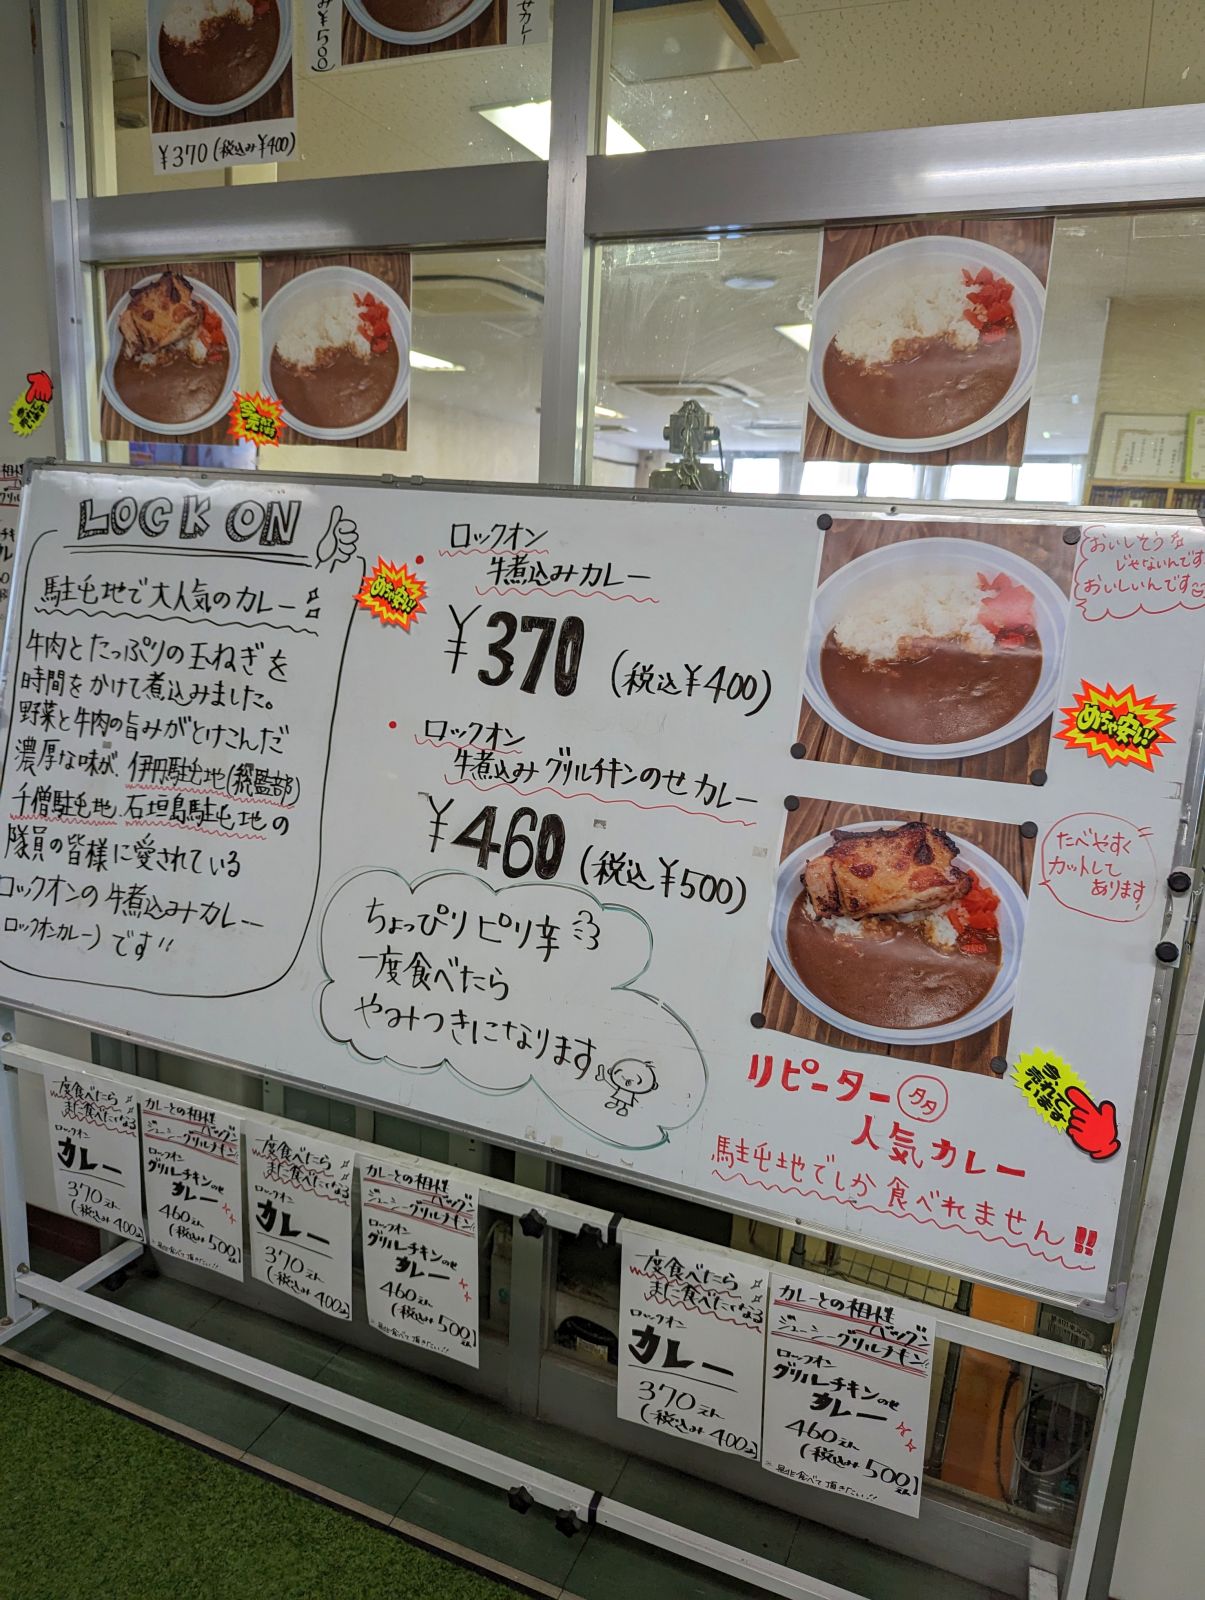 ¥370(税込み¥400)
み¥500)
せカレー
LOCK ON
駐屯地で大人気のカレー
牛肉とたっぷりの玉ねぎを
時間をかけて煮込みました。
野菜と牛肉の旨みがとけこんだ
濃厚な味が、伊丹駐屯地(総監部)
千僧駐屯地、石垣島駐屯地の
隊員の皆様に愛されている
ロックオンの牛煮込みカレー
ロックオンカレー)です!!
めちゃ安い!
ロックオン
牛煮込みカレー
¥370(税込¥400)
ロックオン
牛煮込みグリルチキンのせカレー
¥460(税込¥500)
ちょっぴりピリ辛
一度食べたら
やみつきになります
おいしそう
じゃないんです
おいしいんです
めちゃ安い!
たべやすく
カットして
あります
リピーター多々
人気カレー
駐屯地でしか食べれません!!
今、売れています
一度食べたら
また食べたくなる
ロックオン
カレー
370えん
(税込み400えん)
カレーとの相性
バツグン
ジューシーグリルチキン!
ロックオン
グリルチキンのせ
カレー
460えん
(税込み500えん)
一度食べたら
また食べたくなる
ロックオン
カレー
370えん
(税込み400えん)
カレーとの相性
バツグン
ジューシーグリルチキン!
ロックオン
グリルチキンのせ
カレー
460えん
(税込み500えん)
一度食べたら
また食べたくなる
ロックオン
カレー
370えん
(税込み400えん)
カレーとの相性
バツグン
ジューシーグリルチキン!
ロックオン
グリルチキンのせ
カレー
460えん
(税込み500えん)
※是非食べて頂きたい!!